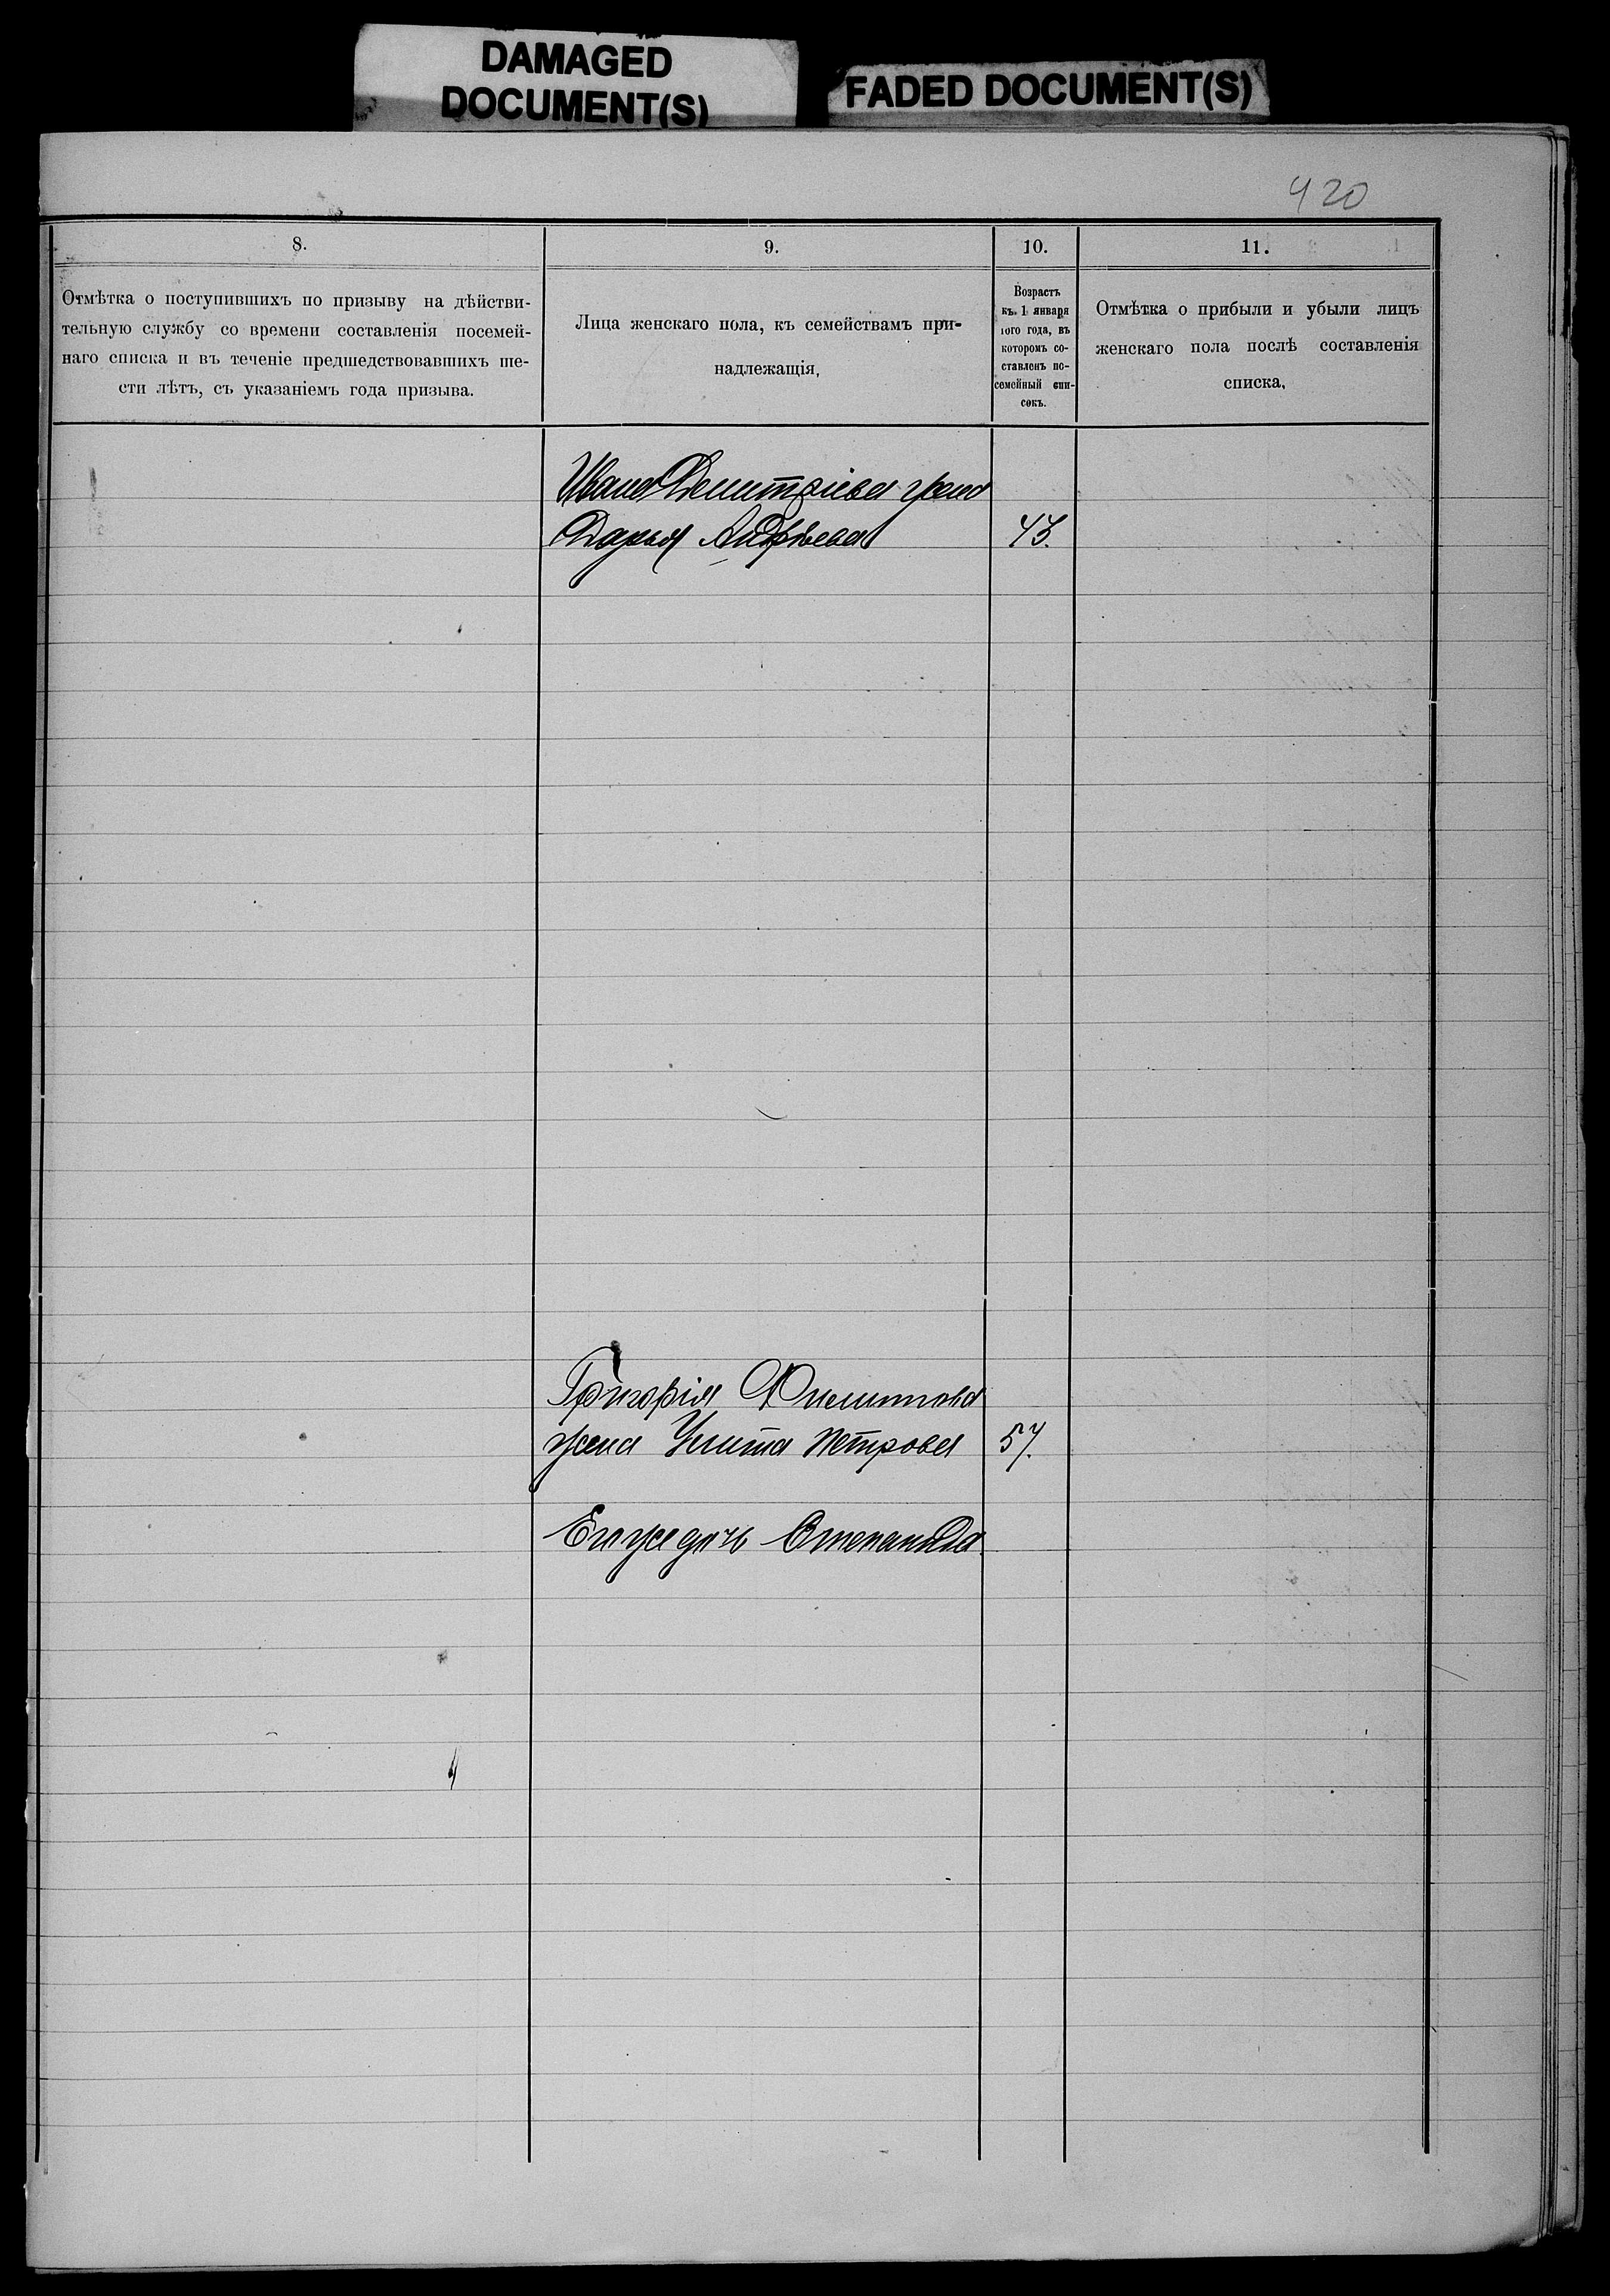 DAMAGED
DOCUMENT(S)
FADED DOCUMENT(S)
420
8.
9.
10.
11.
Отмѣтка о поступившихъ по призыву на дѣйстви-
тельную службу со времени составленія посемей-
наго списка и въ теченіе предшедствовавшихъ ше-
сти лѣтъ, съ указаніемъ года призыва.
Лица женскаго пола, къ семействамъ при-
надлежащія,
Возрастъ
къ 1 января
того года, въ
которомъ со-
ставленъ по-
семейный спи-
сокъ.
Отмѣтка о прибыли и убыли лицъ
женскаго пола послѣ составленія
списка,
Ивана Дмитріева жена
Дарья Андреева 43.
Григорія Филиппова
жена Улита Петрова 57.
Его же дочь Степанида